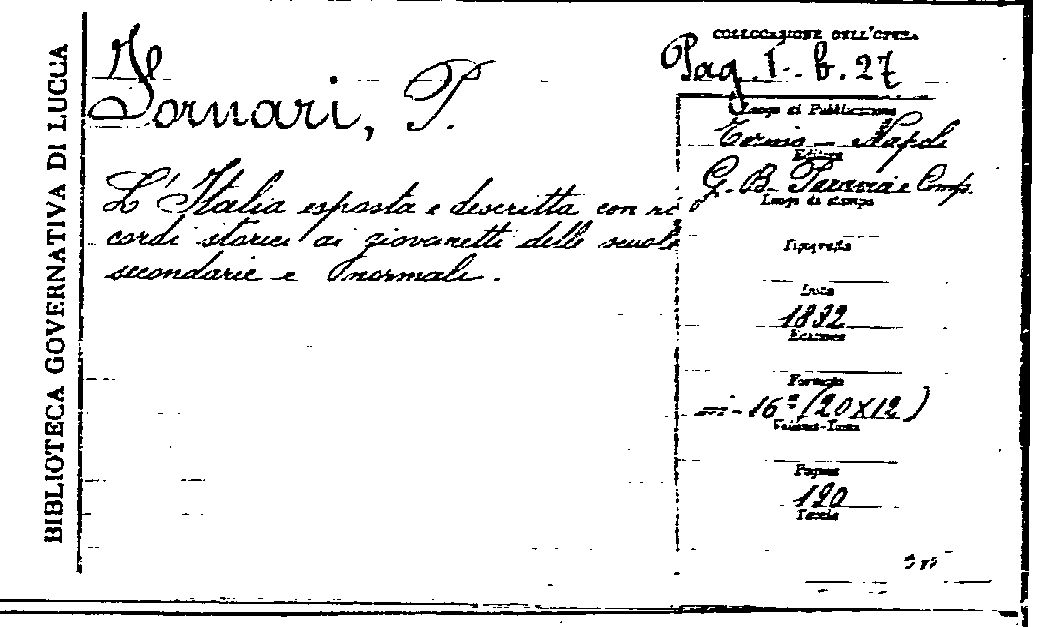 BIBLIOTECA GOVERNATIVA DI LUCCA
Fornari, P.
L'Italia esposta e descritta con ri
cordi storici ai giovanetti delle scuole
secondarie e normali.
COLLOCAZIONE DELL'OPERA
Pag. I. b. 27
Luogo di Pubblicazione
Torino - Napoli
Editore
G. B. Paravia e Comp.
Luogo di stampa
Tipografia
Data
1892
Edizione
Formato
in-16° (20X12)
Volume-Tomo
Pagine
120
Tavole